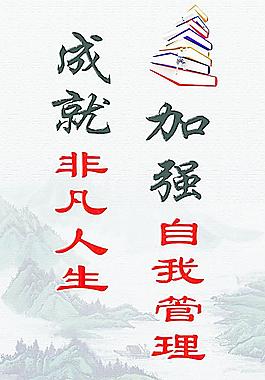 加强自我管理
成就非凡人生